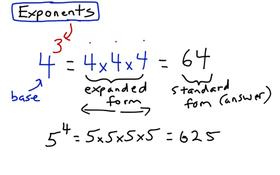 Exponents
4³ = 4 × 4 × 4 = 64
base
expanded form
standard form (answer)
5⁴ = 5 × 5 × 5 × 5 = 625